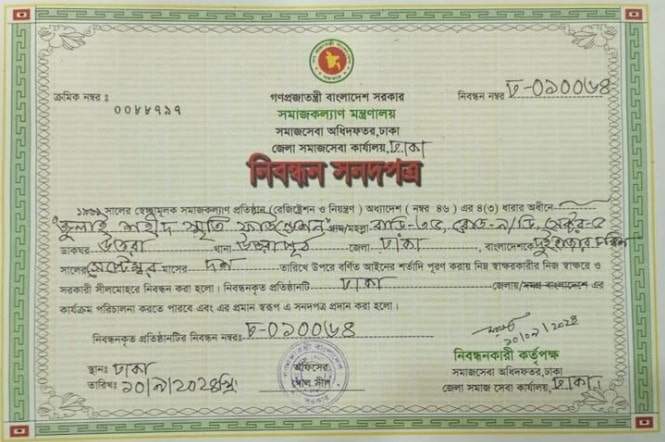 ক্রমিক নম্বর :
০০৮৮৭৯৭
নিবন্ধন নম্বর ঢ-০১০০৬৪
গণপ্রজাতন্ত্রী বাংলাদেশ সরকার
সমাজকল্যাণ মন্ত্রণালয়
সমাজসেবা অধিদফতর,ঢাকা
জেলা সমাজসেবা কার্যালয়, ঢাকা
নিবন্ধন সনদপত্র
১৯৬১ সালের স্বেচ্ছামূলক সমাজকল্যাণ প্রতিষ্ঠান (রেজিষ্ট্রেশন ও নিয়ন্ত্রণ) অধ্যাদেশ (নম্বর ৪৬) এর ৪(৩) ধারার অধীনে
"জুলাই শহীদ স্মৃতি ফাউন্ডেশন" গ্রাম/মহল্লা বাড়ি-৩৪, রোড-৯/ডি, সেক্টর-৫
ডাকঘর উত্তরা থানা উত্তরা পূর্ব জেলা ঢাকা, বাংলাদেশকে দুইহাজার চব্বিশ
সালের সেপ্টেম্বর মাসের দশ তারিখে উপরে বর্ণিত আইনের শর্তাদি পূরণ করায় নিম্ন স্বাক্ষরকারীর নিজ স্বাক্ষরে ও
সরকারী সীলমোহরে নিবন্ধন করা হলো। নিবন্ধনকৃত প্রতিষ্ঠানটি ঢাকা জেলায়/সমগ্র বাংলাদেশে এর
কার্যক্রম পরিচালনা করতে পারবে এবং এর প্রমান স্বরূপ এ সনদপত্র প্রদান করা হলো।
নিবন্ধনকৃত প্রতিষ্ঠানটির নিবন্ধন নম্বরঃ ঢ-০১০০৬৪
১০/০৯/২০২৪
নিবন্ধনকারী কর্তৃপক্ষ
স্থানঃ ঢাকা
অফিসের
সমাজসেবা অধিদফতর,ঢাকা
তারিখঃ ১০/৯/২০২৪খ্রি:
গোল সীল
জেলা সমাজ সেবা কার্যালয়, ঢাকা।